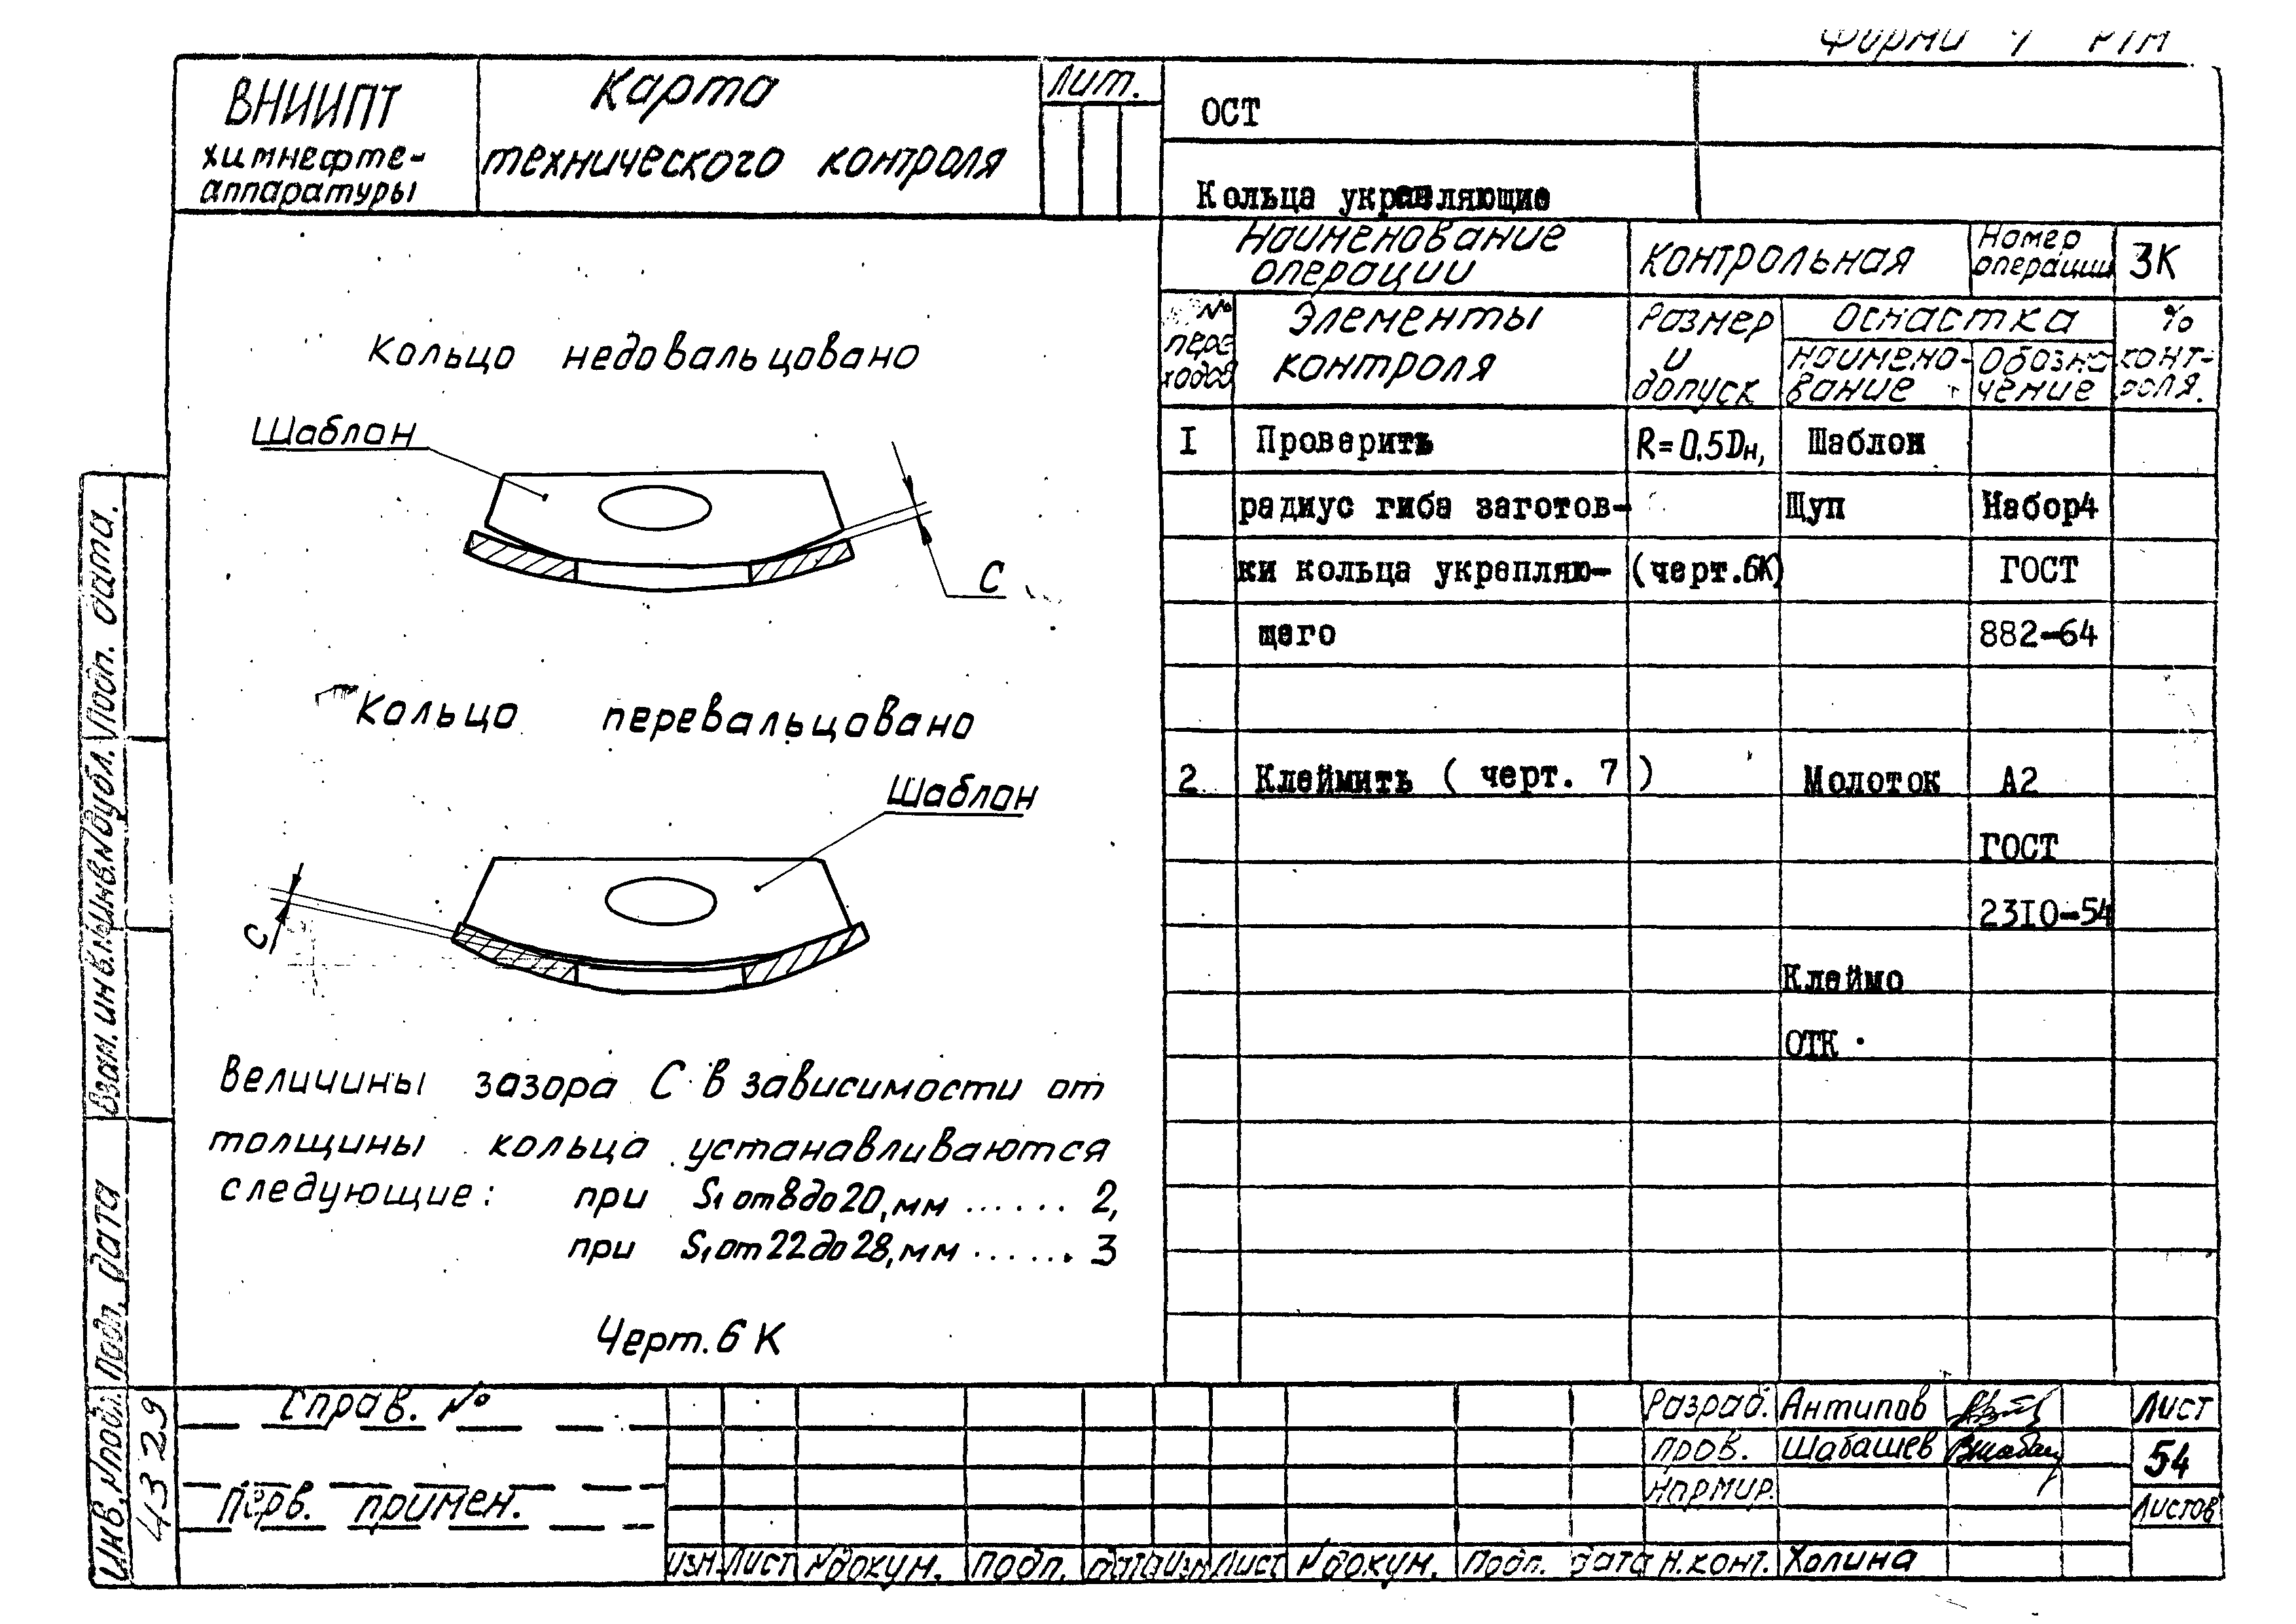 ВНИИПТ
химнефте-
аппаратуры
Карта
технического контроля
Лит.
ОСТ
Кольца укрепляющие
Наименование
операции
Контрольная
Номер
операции
3К
№
пере
ходов
Элементы
контроля
Размер
и
допуск
Оснастка
Наимено-
вание
Обозна
чение
%
конт-
роля.
Кольцо недовальцовано
Шаблон
С
Кольцо перевальцовано
Шаблон
С
Величины зазора С в зависимости от
толщины кольца устанавливаются
следующие: при S₁ от 8 до 20, мм ...... 2,
при S₁ от 22 до 28, мм ...... 3
Черт. 6 К
I Проверить R=0.5Dн, Шаблон
радиус гиба заготов- Щуп Набор4
ки кольца укрепляю- (черт.6К) ГОСТ
щего 882-64
2 Клеймить ( черт. 7 ) Молоток А2
ГОСТ
23I0-54
Клеймо
ОТК
Подп. дата.
Инв.№дубл.
Взам.инв.№
Подп. дата
Инв.№подл.
4329
Справ. №
Перв. примен.
Изм. Лист №докум. подп. дата Изм Лист №докум. Подп. дата
Разраб. Антипов
Пров. Шабашев
Нормир.
Н.конт. Холина
Лист
54
Листов